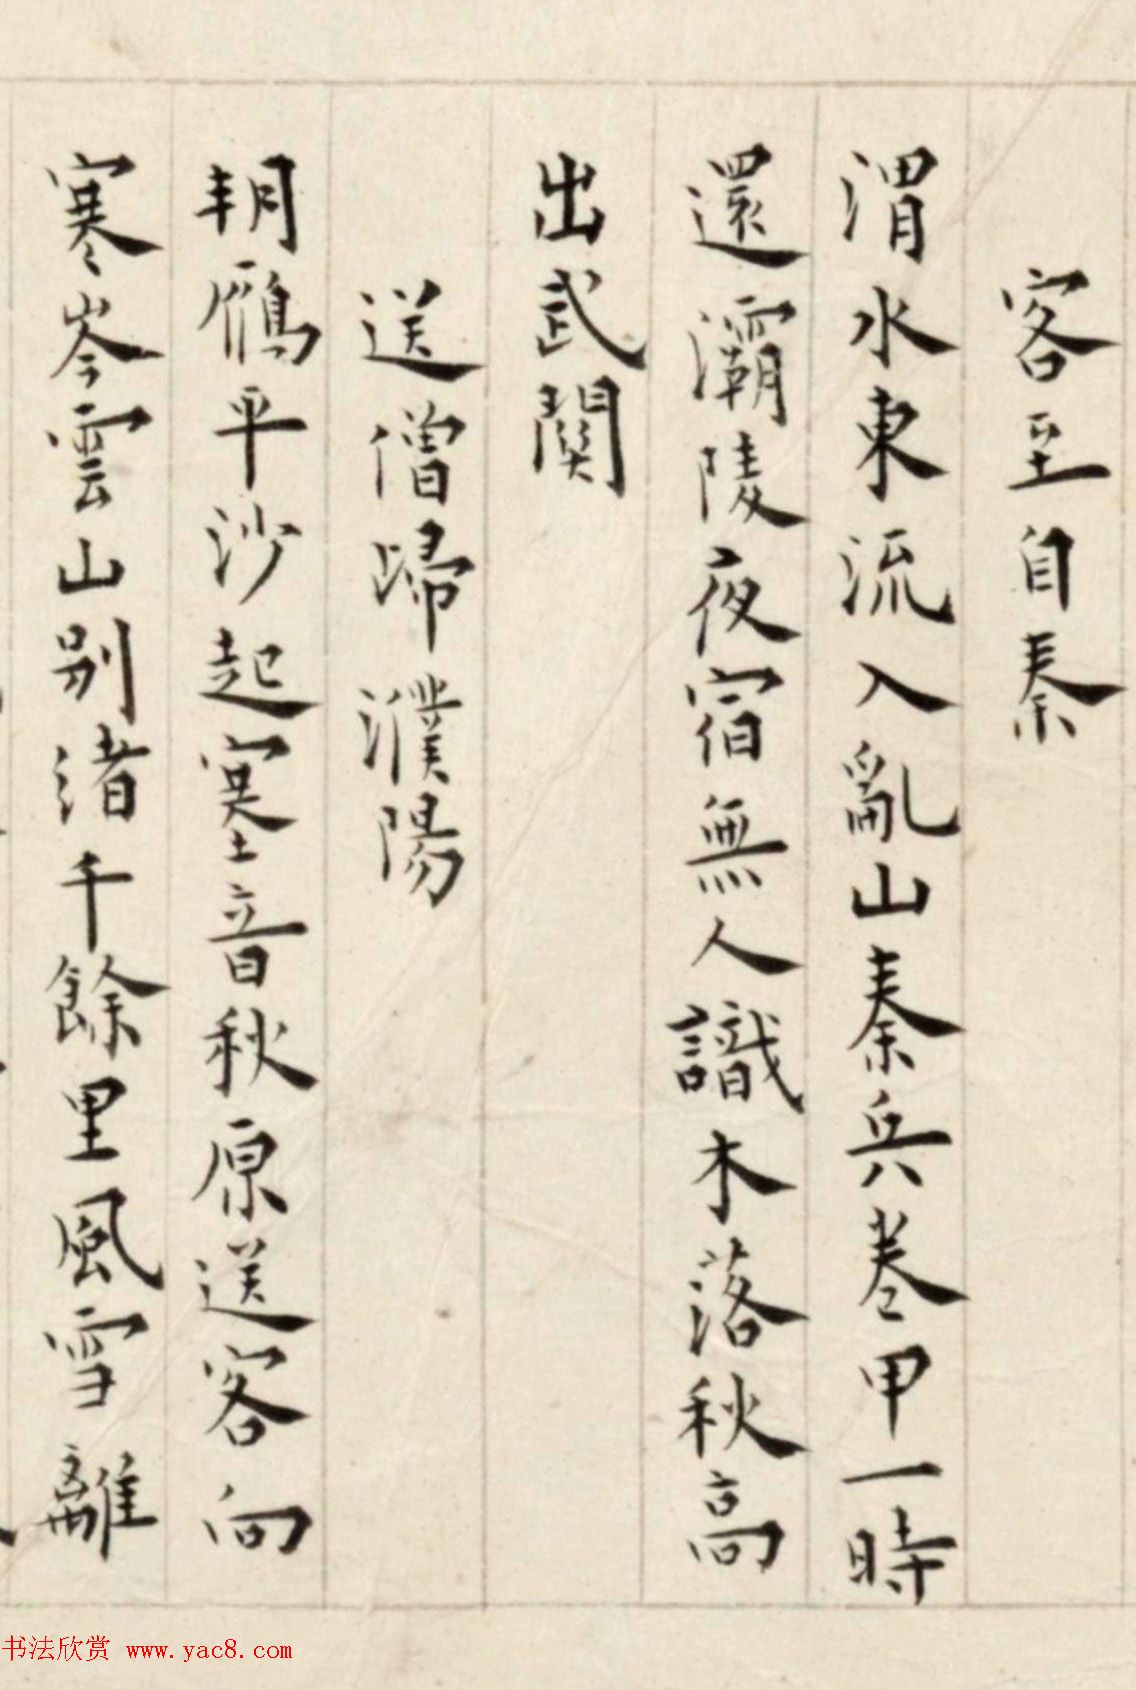 客至自秦
渭水東流入亂山秦兵卷甲一時
還灞陵夜宿無人識木落秋高
出武関
送僧歸濮陽
朝鴈平沙起塞音秋原送客向
寒岑雲山别渚千餘里風雪離
书法欣赏 www.yac8.com